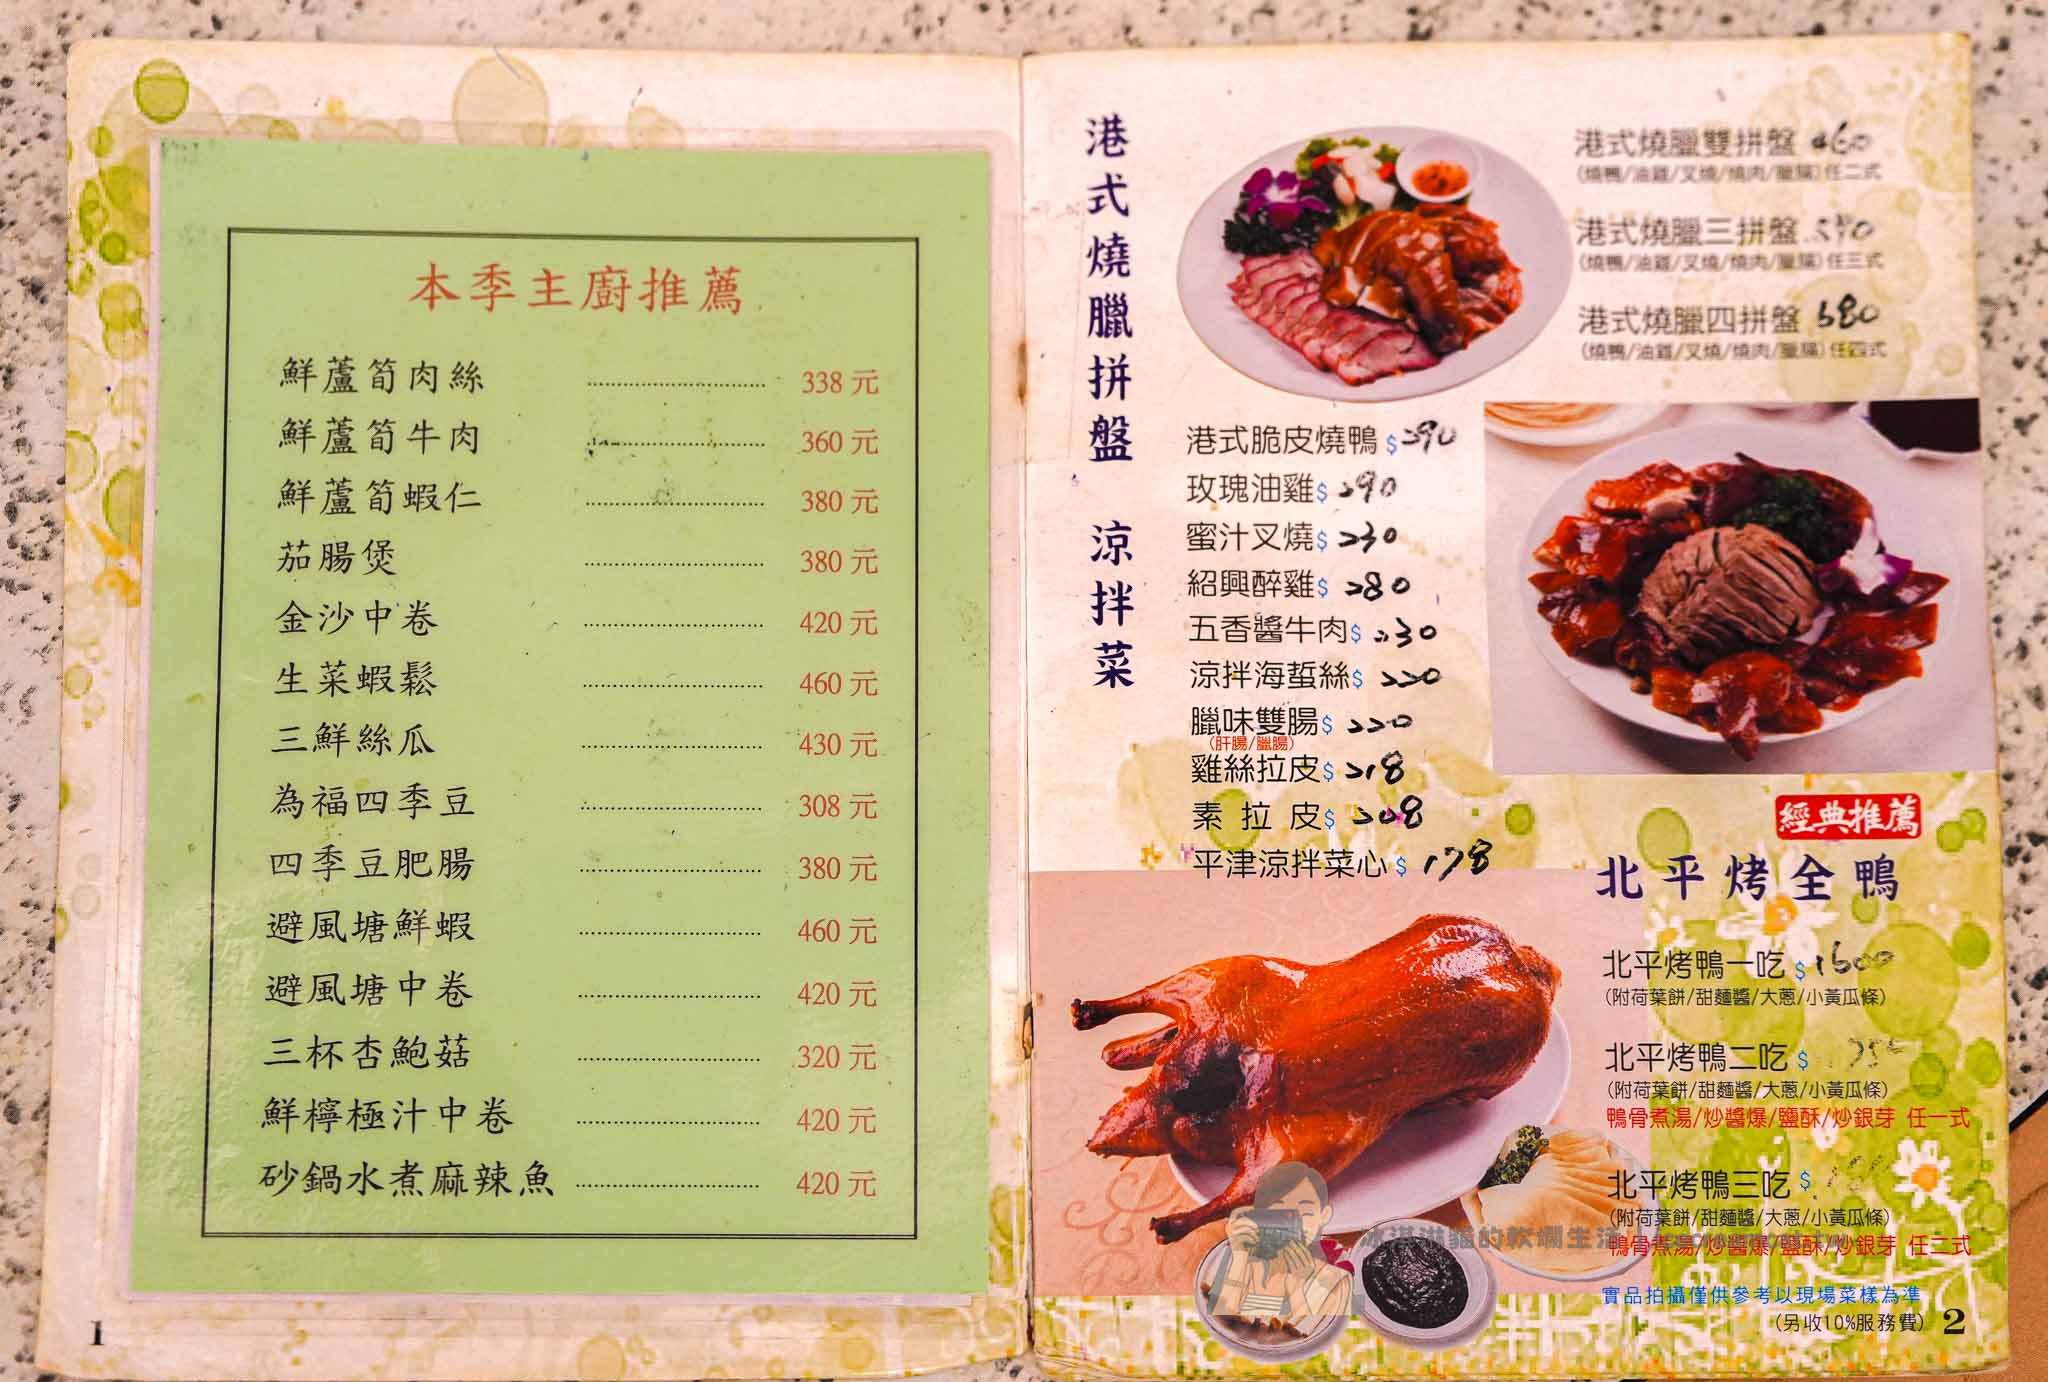 本季主廚推薦
鮮蘆筍肉絲 338 元
鮮蘆筍牛肉 360 元
鮮蘆筍蝦仁 380 元
茄腸煲 380 元
金沙中卷 420 元
生菜蝦鬆 460 元
三鮮絲瓜 430 元
為福四季豆 308 元
四季豆肥腸 380 元
避風塘鮮蝦 460 元
避風塘中卷 420 元
三杯杏鮑菇 320 元
鮮檸極汁中卷 420 元
砂鍋水煮麻辣魚 420 元
1
港式燒臘拼盤 涼拌菜
港式燒臘雙拼盤 460
(燒鴨/油雞/叉燒/燒肉/臘腸)任二式
港式燒臘三拼盤
(燒鴨/油雞/叉燒/燒肉/臘腸)任三式
港式燒臘四拼盤 680
(燒鴨/油雞/叉燒/燒肉/臘腸)任四式
港式脆皮燒鴨$290
玫瑰油雞$290
蜜汁叉燒$230
紹興醉雞$280
五香醬牛肉$230
涼拌海蜇絲$220
臘味雙腸$220
(肝腸/臘腸)
雞絲拉皮$218
素拉皮$208
平津涼拌菜心$178
經典推薦
北平烤全鴨
北平烤鴨一吃$1600
(附荷葉餅/甜麵醬/大蔥/小黃瓜條)
北平烤鴨二吃$
(附荷葉餅/甜麵醬/大蔥/小黃瓜條)
鴨骨煮湯/炒醬爆/鹽酥/炒銀芽 任一式
北平烤鴨三吃$
(附荷葉餅/甜麵醬/大蔥/小黃瓜條)
鴨骨煮湯/炒醬爆/鹽酥/炒銀芽 任二式
冰淇淋貓的軟爛生活
實品拍攝僅供參考以現場菜樣為準
(另收10%服務費) 2